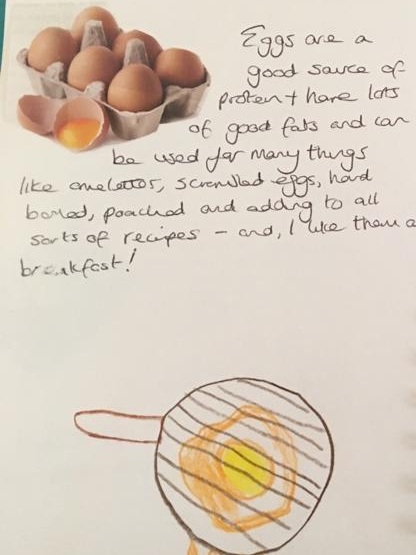 Eggs are a
good sauce of
protein + have lots
of good fats and can
be used for many things
like omelettes, scrambled eggs, hard
boiled, poached and adding to all
sorts of recipes – and, I like them a
breakfast!